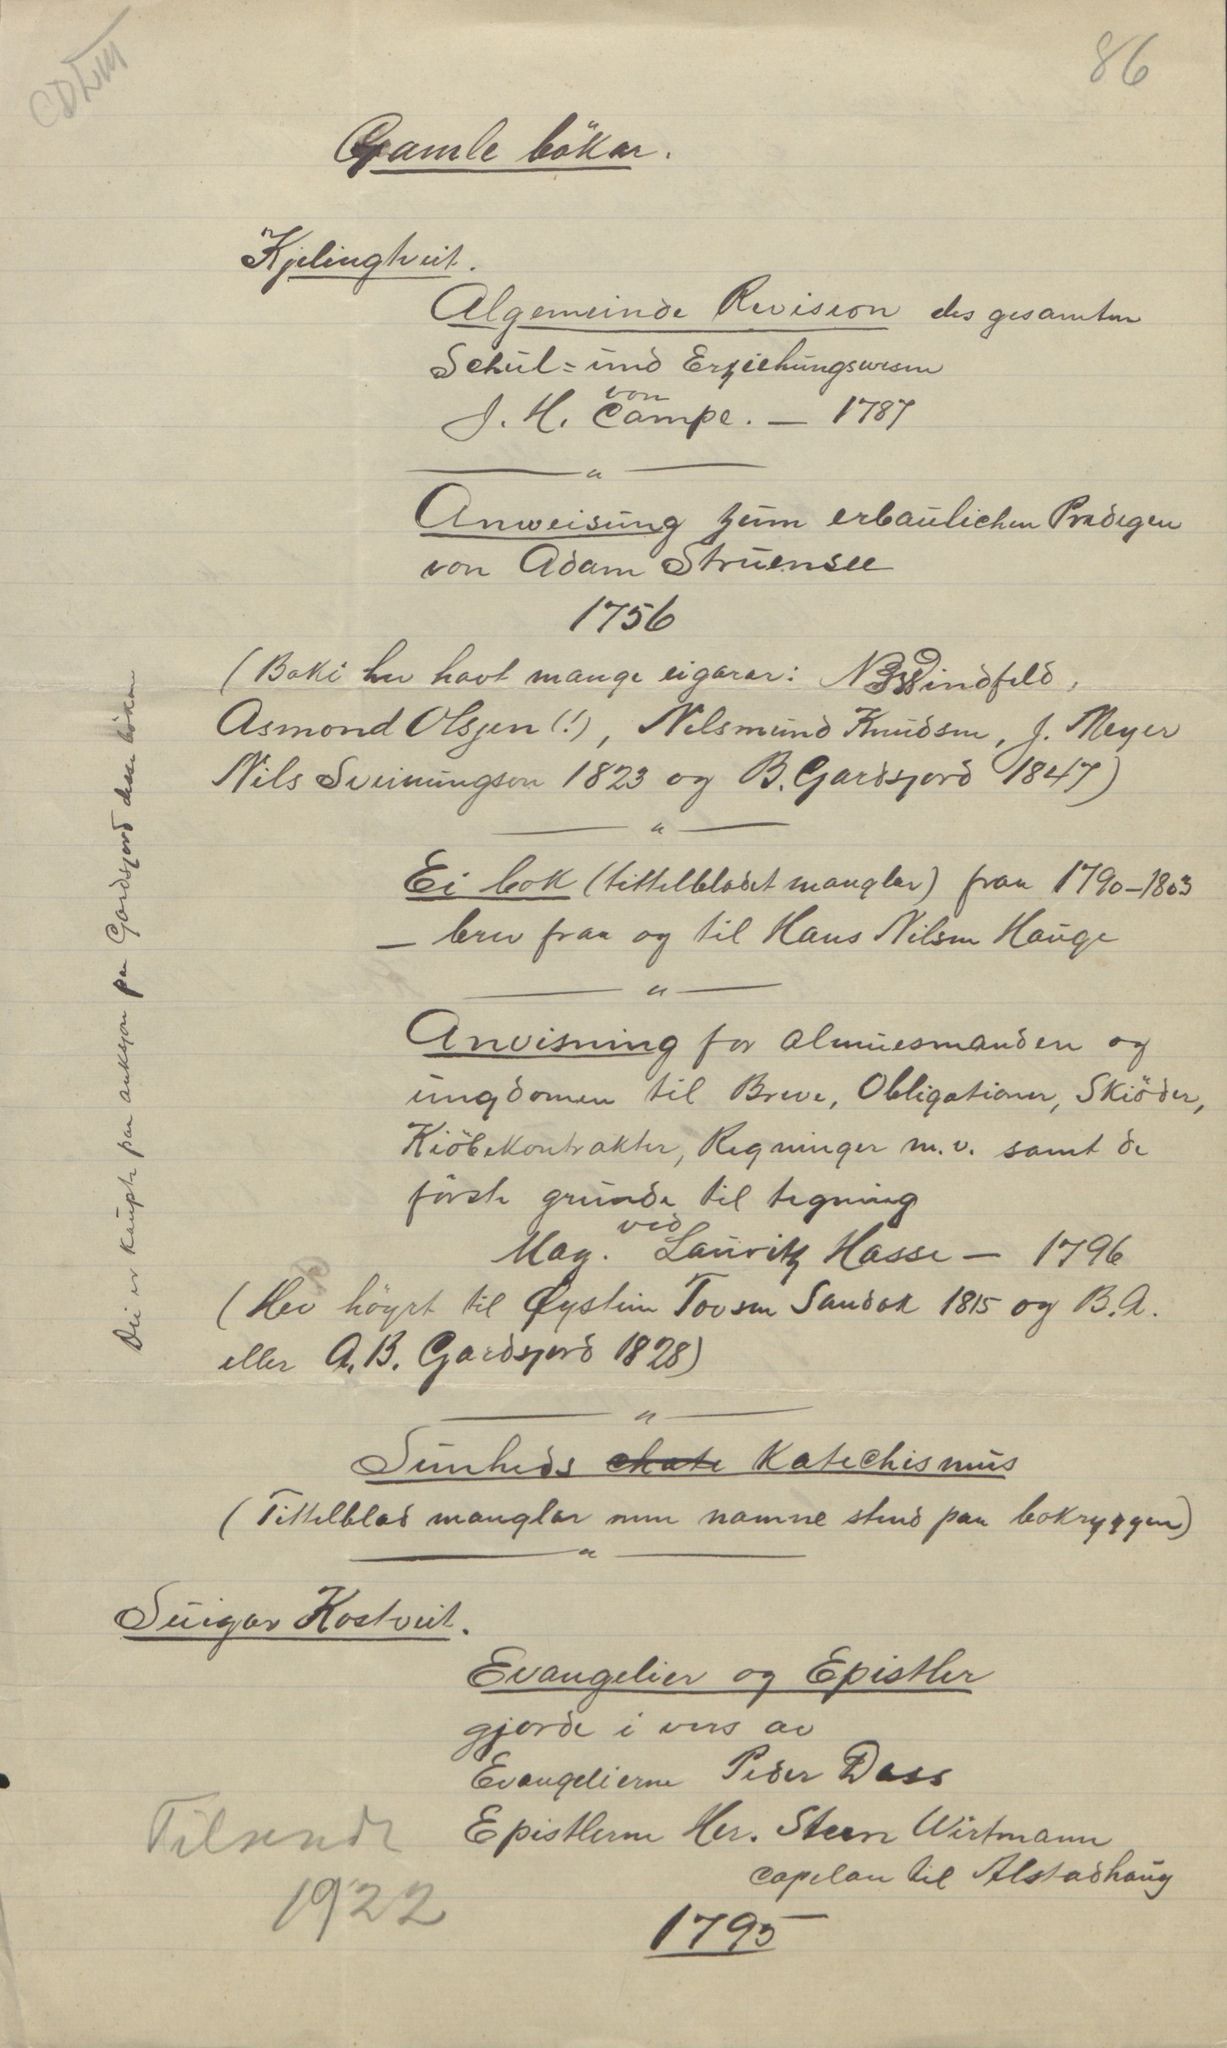 86
CDLIII
Gamle bökar.
Kjelingtveit.
Algemeinde Revision des gesamten
Schul= und Erziehungswesen
von
J. H. Campe. — 1787
— " —
Anweisung zum erbaulichen Predigen
von Adam Struensee
1756
(Boki hev havt mange eigarar: Windfeld,
Asmond Olsjen (!), Nilsmund Knudsen, J. Meyer
Nils Sveinungson 1823 og B. Gardsjord 1847)
— " —
Ei bok (tittelbladet manglar) fraa 1790–1803
— brev fraa og til Hans Nilsen Hauge
— " —
Anvisning for almuesmanden og
ungdomen til Breve, Obligationer, Skiöder,
Kiöbekontrakter, Regninger m.v. samt de
förste grunde til tegning
ved
Mag. Lauritz Hasse — 1796
(Hev höyrt til Øystein Tovsen Sandok 1815 og B.A.
eller A. B. Gardsjord 1828)
— " —
Sunheds chate Katechismus
(Tittelblad manglar men namne stend paa bokryggen)
— " —
Svigar Kostveit.
Evangelier og Epistler
gjorde i vers av
Evangelierne Peder Dass
Epistlerne Her. Steen Wirtmann
capelan til Alstadhaug
1795
Dei er kaupte paa auksjon paa Gardsjord desse bökan
Tilsendt
1922